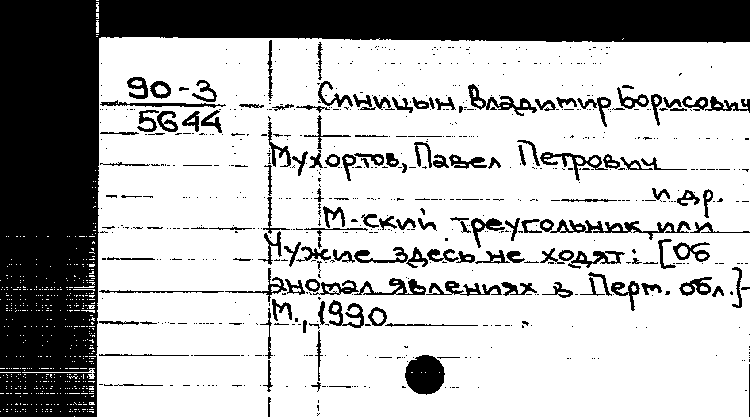 90-3
5644
Синицын, Владимир Борисович
Мухортов, Павел Петрович
и др.
М-ский треугольник, или
Чужие здесь не ходят: [Об
аномал явлениях в Перм. обл.]-
М., 1990